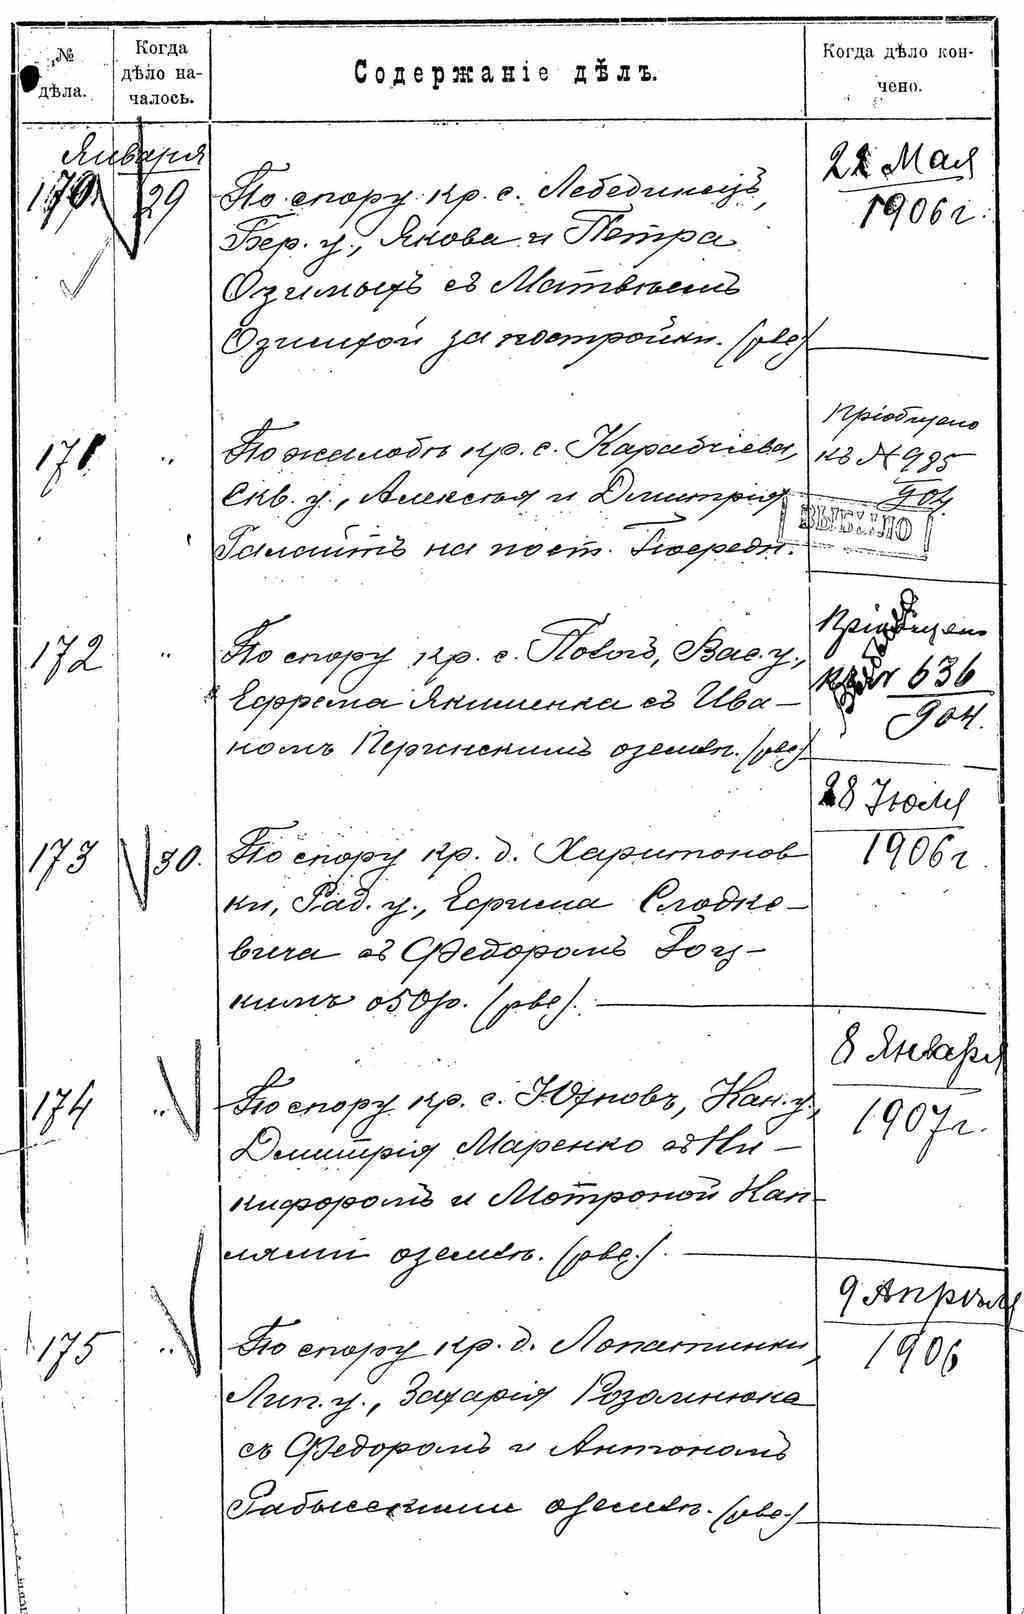 № дѣла.
Когда дѣло на-
чалось.
Содержаніе дѣлъ.
Когда дѣло кон-
чено.
Января
170 29 По спору кр. с. Лебединецъ,
Бер. у., Якова и Петра
Озимыхъ съ Матвѣемъ
Озимой за постройки. (рве)
22 Мая
1906 г.
171 " По жалобѣ кр. с. Карабчіева,
Скв. у., Алексѣя и Дмитрія
на пост. Посредн.
Пріобщено
къ № 985
904
ВЫБЫЛО
172 " По спору кр. с. Вас. у.,
Ефрема Якименка съ Ива-
номъ Перинскимъ оземлѣ. (рве)
Пріобщено
къ № 636
904.
173 30. По спору кр. д. Харитонов
ки, Рад. у., Ефима Слодке-
вича съ Федоромъ Гоц-
кимъ о50р. (рве).
28 Іюля
1906 г
174 " По спору кр. с. Кан. у.,
Дмитрія Маренко съ Ни-
кифоромъ и Мотроной Кап-
лями оземлѣ. (рве.).
8 Января
1907 г.
175 " По спору кр. д. Лопатинки,
Лип. у., Захарія Розомнюка
съ Федоромъ и Антономъ
оземлѣ. (рве.)
9 Апрѣля
1906